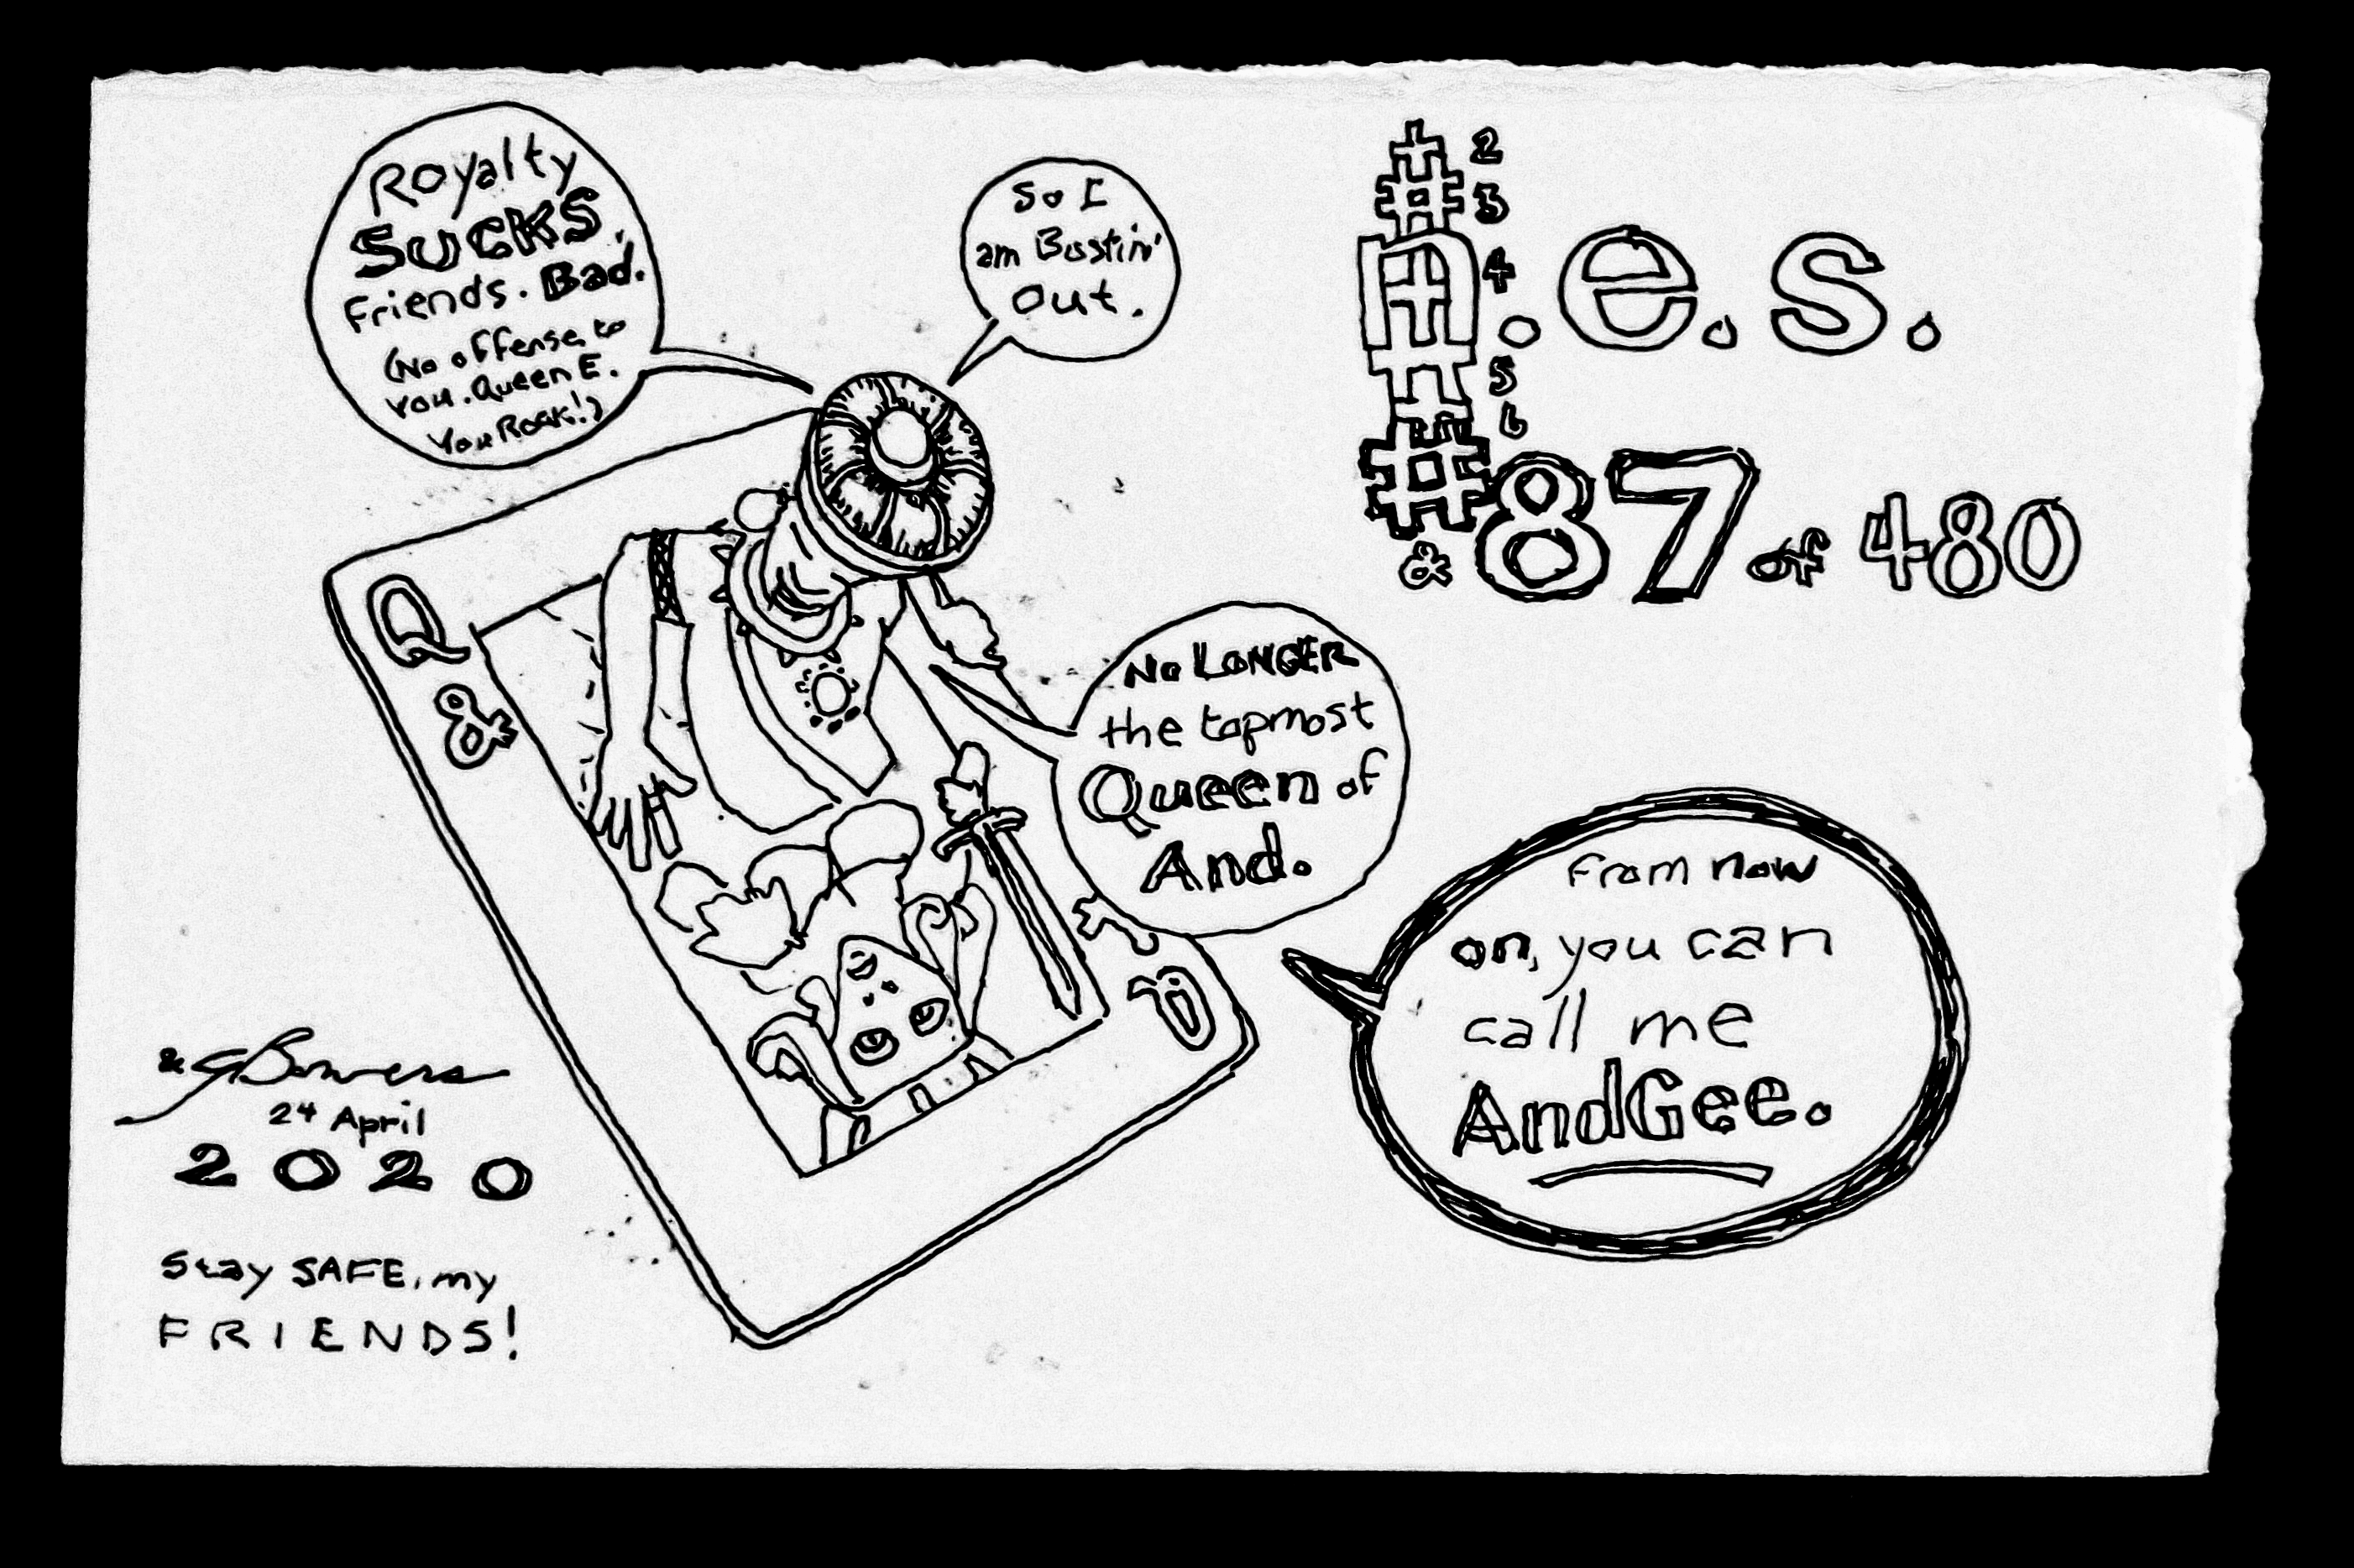 Royalty
SUCKS,
Friends. Bad.
(No offense, to
you. Queen E.
You Rock!)
So I
am Bustin'
Out.
# 2
# 3
n.e.s.
4
5
6
# & 87 of 480
Q
&
No LONGER
the topmost
Queen of
And.
From now
on, you can
call me
AndGee.
&
Q
& GBowers
24 April
2020
Stay SAFE, my
FRIENDS!